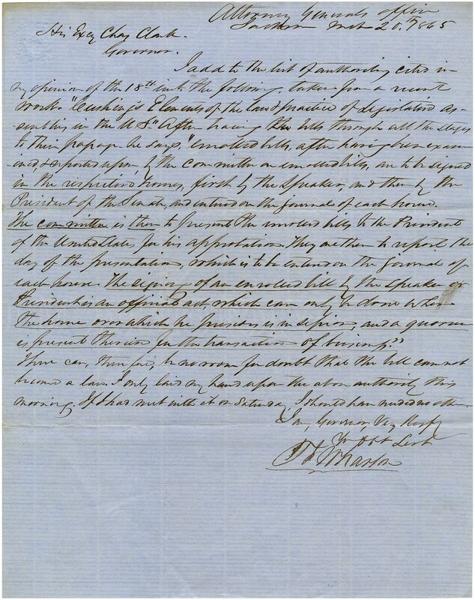 Attorney Generals office
Jackson Mch 20th 1865
His Excy Chas Clark
Governor.
I add to the list of authorities cited in
my opinion of the 18th inst the following taken from a recent
work "Cushing's Elements of the law & practice of legislators as-
semblies in the U.S." After tracing the bills through all the stages
to their passage he says, "enrolled bills, after having been exam-
ined, & reported upon, by the committee on enrolled bills, are to be signed
in the respective houses, first by the Speaker, and then by the
President of the Senate, and entered on the journals of each house.
The committee is then to present the enrolled bills to the President
of the United States for his approbation. They are then to report the
day of the presentation, which is to be entered on the journal of
each house. The signing of an enrolled bill by the Speaker or
President is an official act, which can only be done when
the house over which he presides is in session, and a quorum
is present therein for the transaction of business."
There can, therefore, be no room for doubt that the bill can not
become a law. I only laid my hands upon the above authority this
morning. If I had met with it on Saturday, I should have needed no other
I am, Governor Very Respy
Yr Obt Servt
T J Wharton